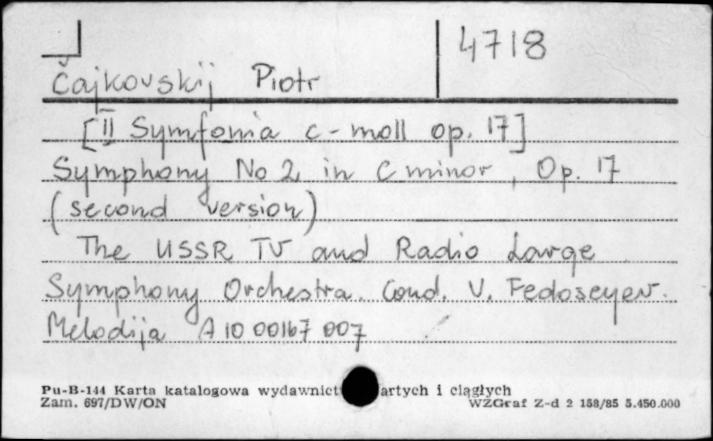 4718
Čajkovskij Piotr
[II Symfonia c-moll op. 17]
Symphony No 2 in C minor, Op. 17
(second version)
The USSR TV and Radio Large
Symphony Orchestra. Cond. V. Fedoseyev.
Melodija A 10 00167 007
Pu-B-144 Karta katalogowa wydawnict artych i ciągłych
Zam. 697/DW/ON WZGraf Z-d 2 158/85 5.450.000